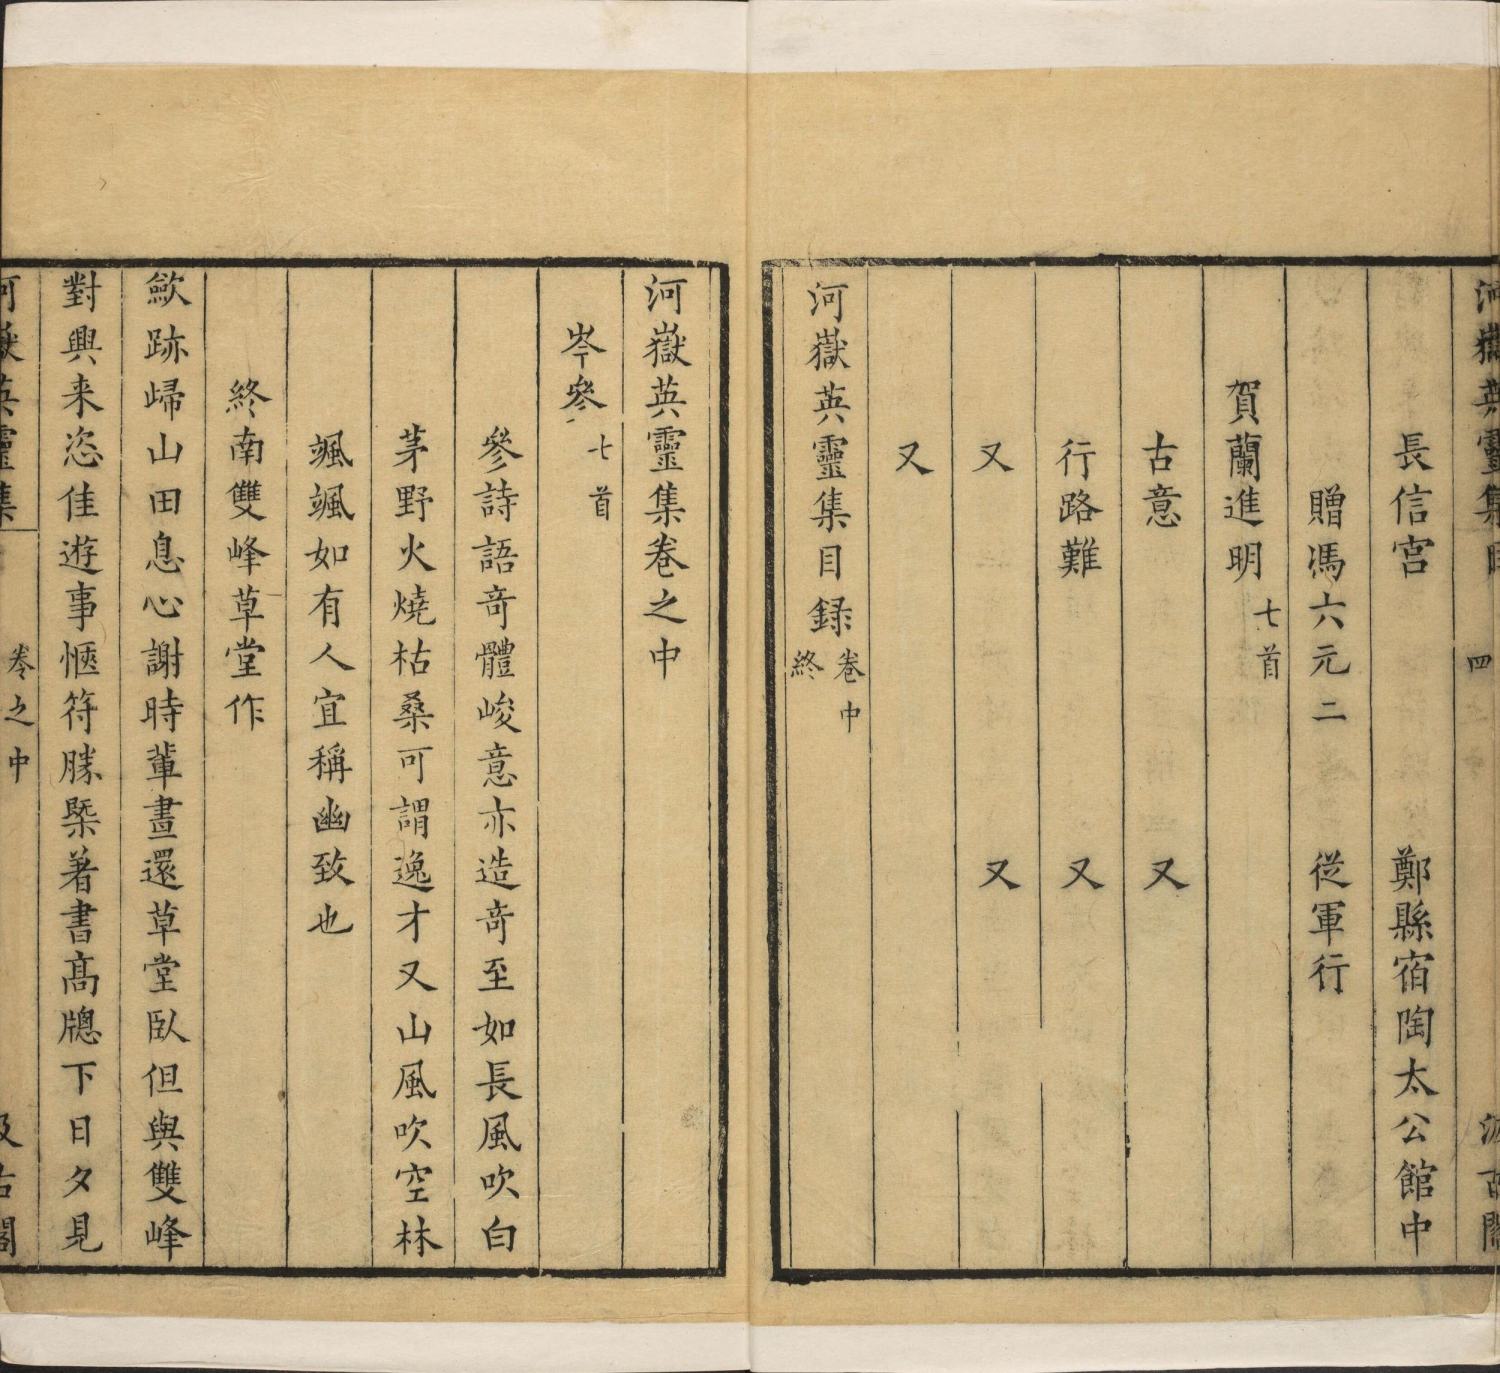 河嶽英靈集目 四 汲古閣
長信宮 鄭縣宿陶太公館中
贈馮六元二 從軍行
賀蘭進明 七首
古意 又
行路難 又
又 又
又
河嶽英靈集目録 卷中終
河嶽英靈集卷之中
岑參 七首
參詩語竒體峻意亦造竒至如長風吹白
茅野火燒枯桑可謂逸才又山風吹空林
颯颯如有人宜稱幽致也
終南雙峰草堂作
歛跡歸山田息心謝時輩晝還草堂臥但與雙峰
對興来恣佳遊事愜符勝槩著書髙牎下日夕見
河嶽英靈集 卷之中 汲古閣